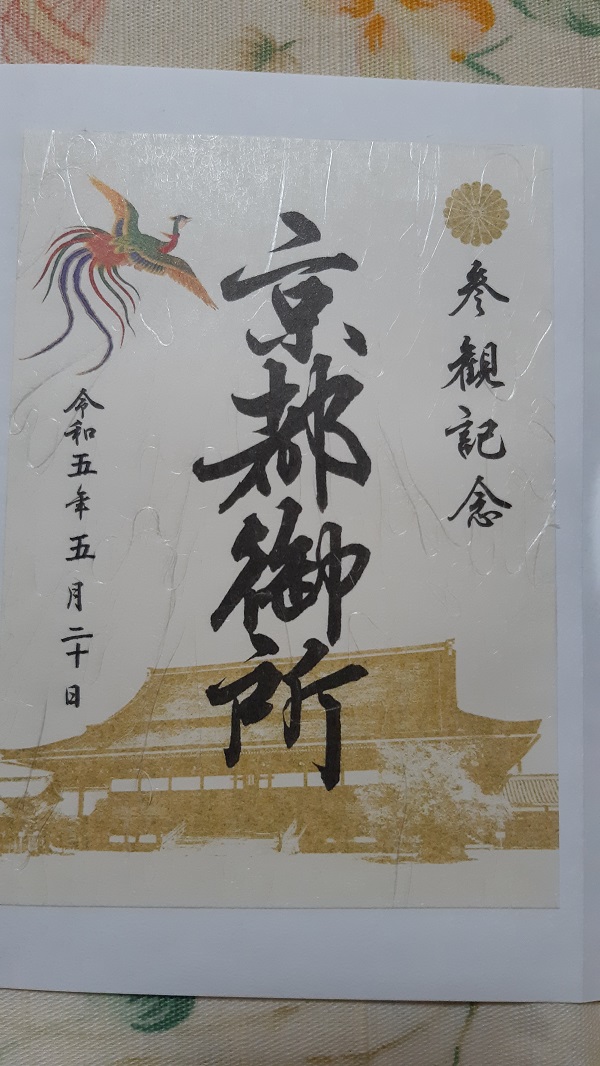 参観記念
京都御所
令和五年五月二十日